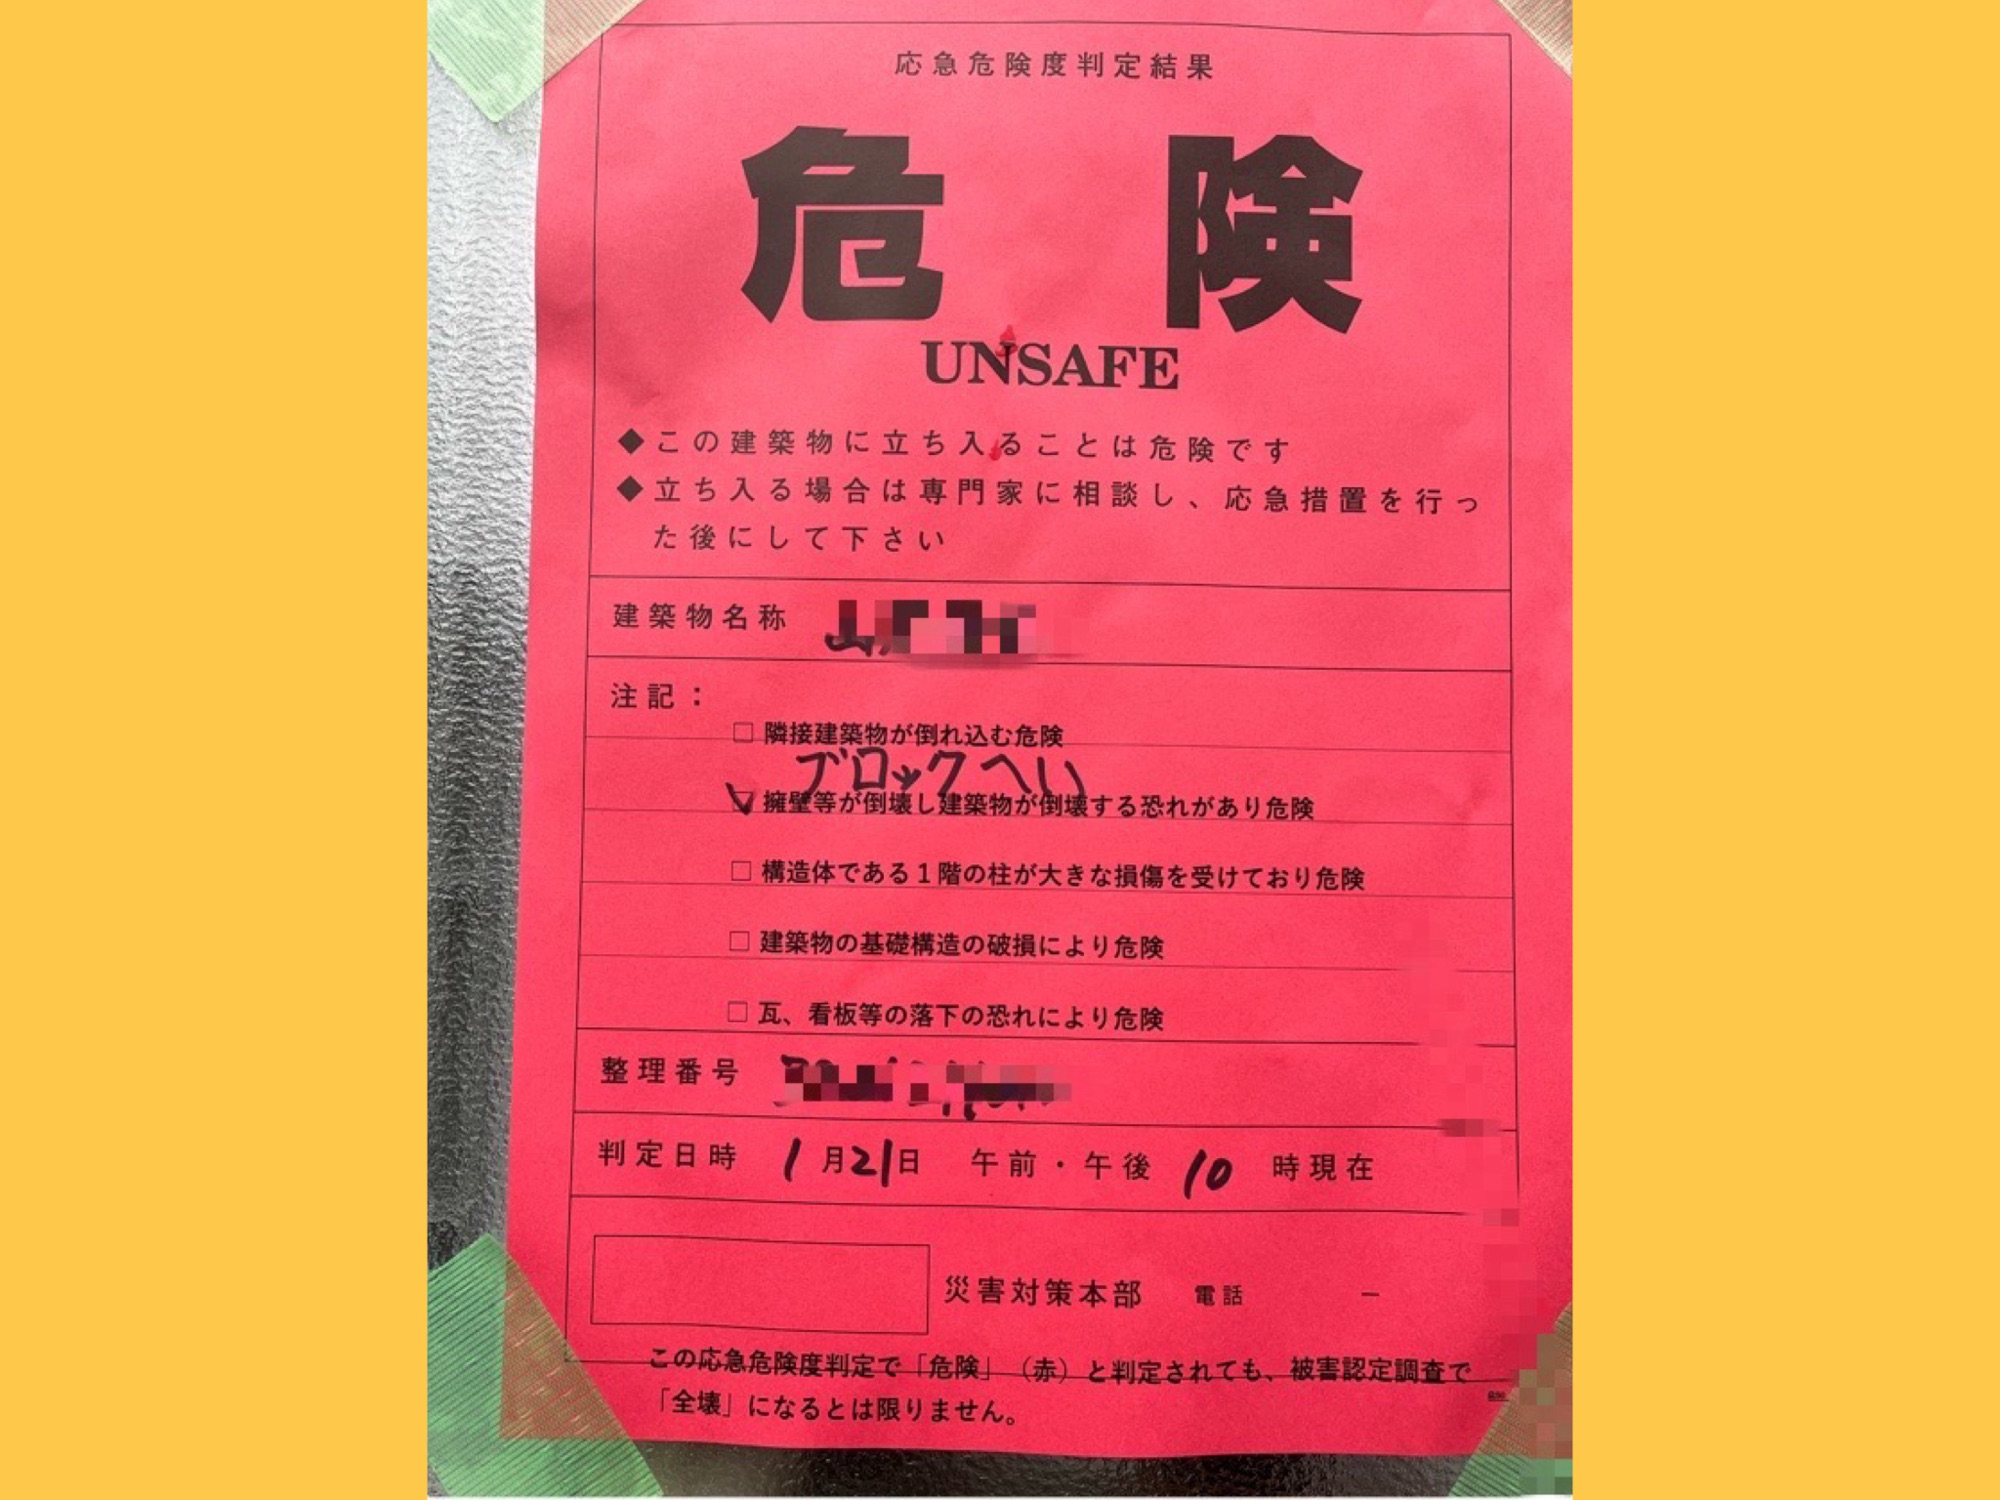 応急危険度判定結果
危険
UNSAFE
◆この建築物に立ち入ることは危険です
◆立ち入る場合は専門家に相談し、応急措置を行っ
た後にして下さい
建築物名称
注記：
□ 隣接建築物が倒れ込む危険
ブロックへい
☑ 擁壁等が倒壊し建築物が倒壊する恐れがあり危険
□ 構造体である１階の柱が大きな損傷を受けており危険
□ 建築物の基礎構造の破損により危険
□ 瓦、看板等の落下の恐れにより危険
整理番号
判定日時 1月21日 午前・午後 10 時現在
災害対策本部 電話 －
この応急危険度判定で「危険」（赤）と判定されても、被害認定調査で
「全壊」になるとは限りません。